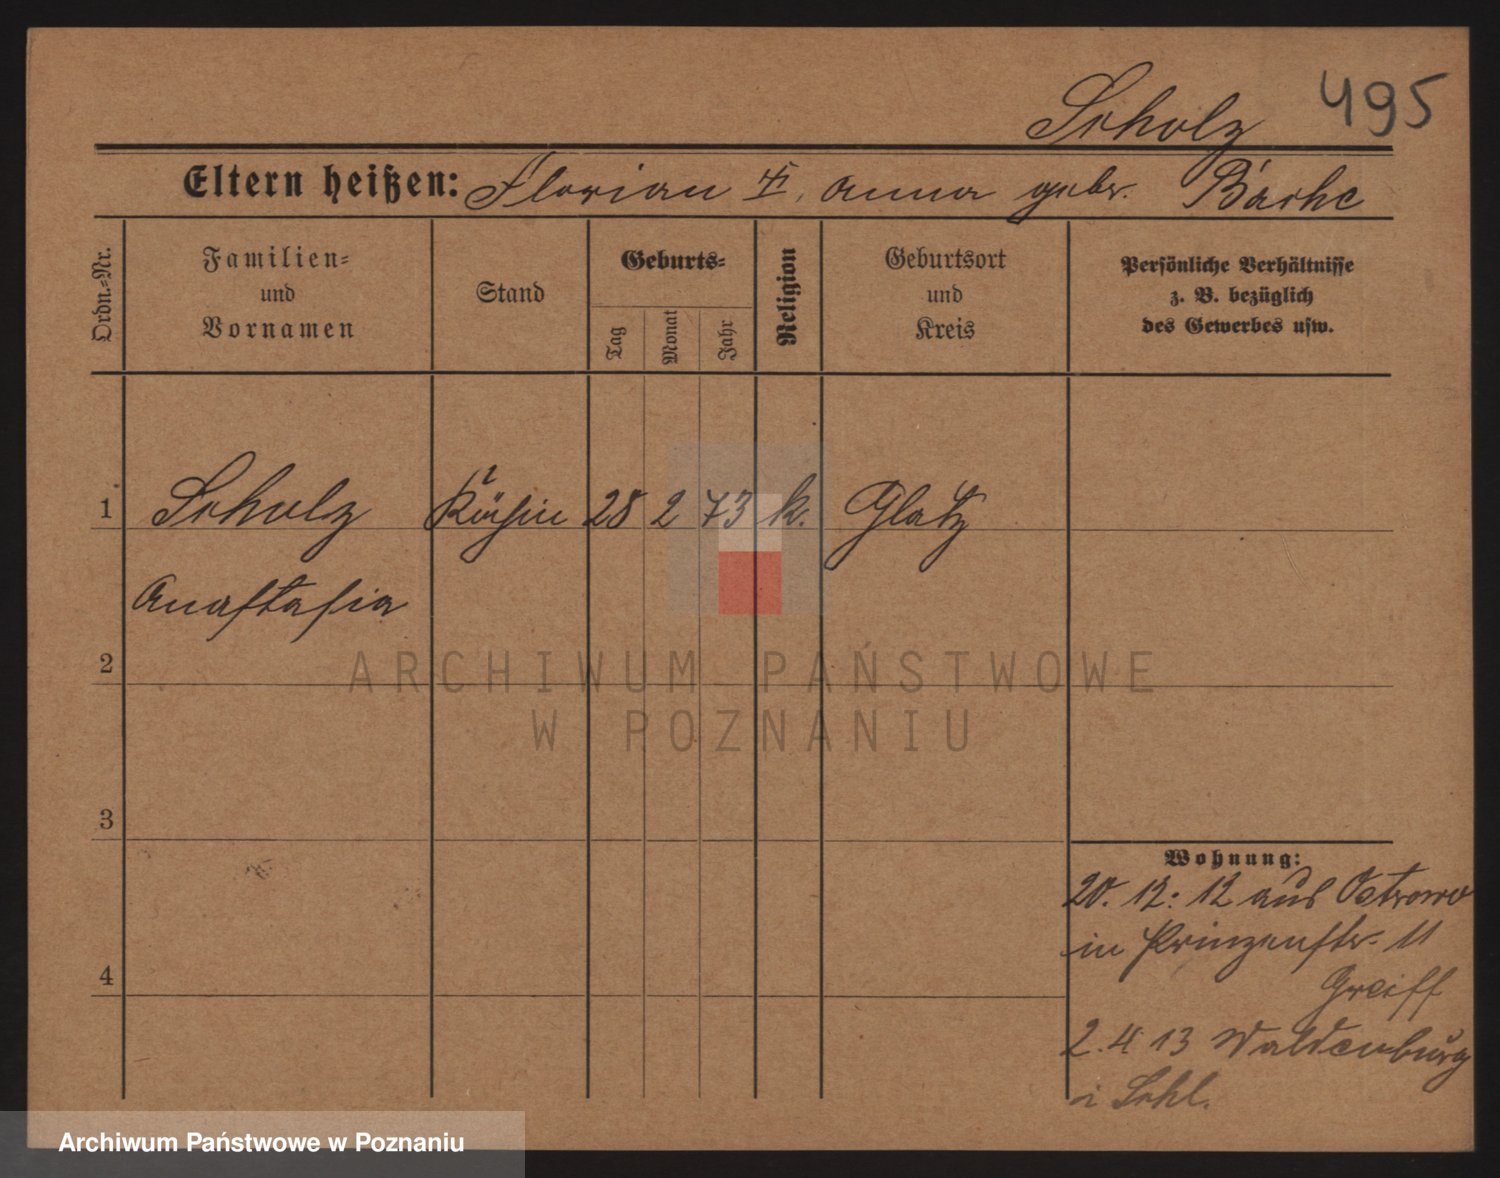 495
Scholz
Eltern heißen: Florian u. Anna gebr.
Ordn.-Nr.
Familien- und Vornamen
Stand
Geburts-
Tag
Monat
Jahr
Religion
Geburtsort und Kreis
Persönliche Verhältnisse
z. B. bezüglich
des Gewerbes usw.
1 Scholz 28 2 73 k. Glatz
Anastasia
2
3
4
Wohnung:
20. 12. 12 aus Ostrowo
in Prinzenstr. 11
Greiff
2. 4 13 Waldenburg
i Schl.
ARCHIWUM PAŃSTWOWE
W POZNANIU
Archiwum Państwowe w Poznaniu